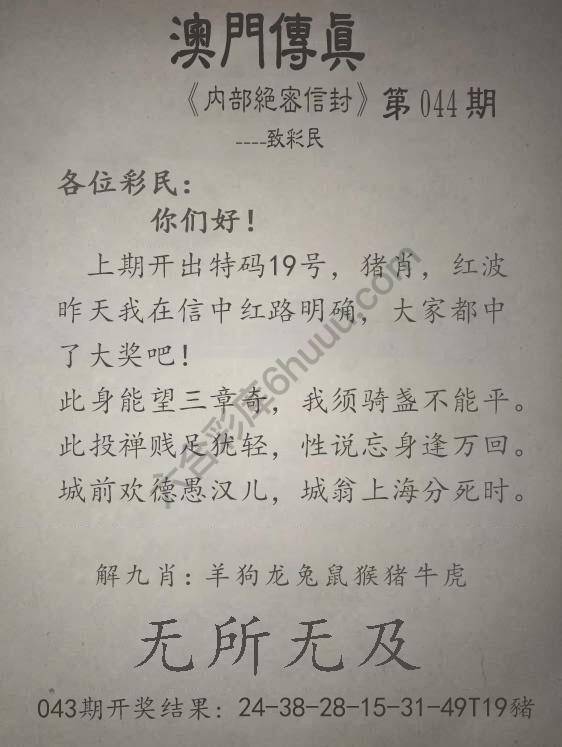 澳門傳眞
《内部絕密信封》第044期
----致彩民
各位彩民：
你们好！
上期开出特码19号，猪肖，红波
昨天我在信中红路明确，大家都中
了大奖吧！
此身能望三章奇，我须骑盏不能平。
此投禅贱足犹轻，性说忘身逢万回。
城前欢德愚汉儿，城翁上海分死时。
六合彩库6huuu.com
解九肖：羊狗龙兔鼠猴猪牛虎
无所无及
043期开奖结果：24-38-28-15-31-49T19豬